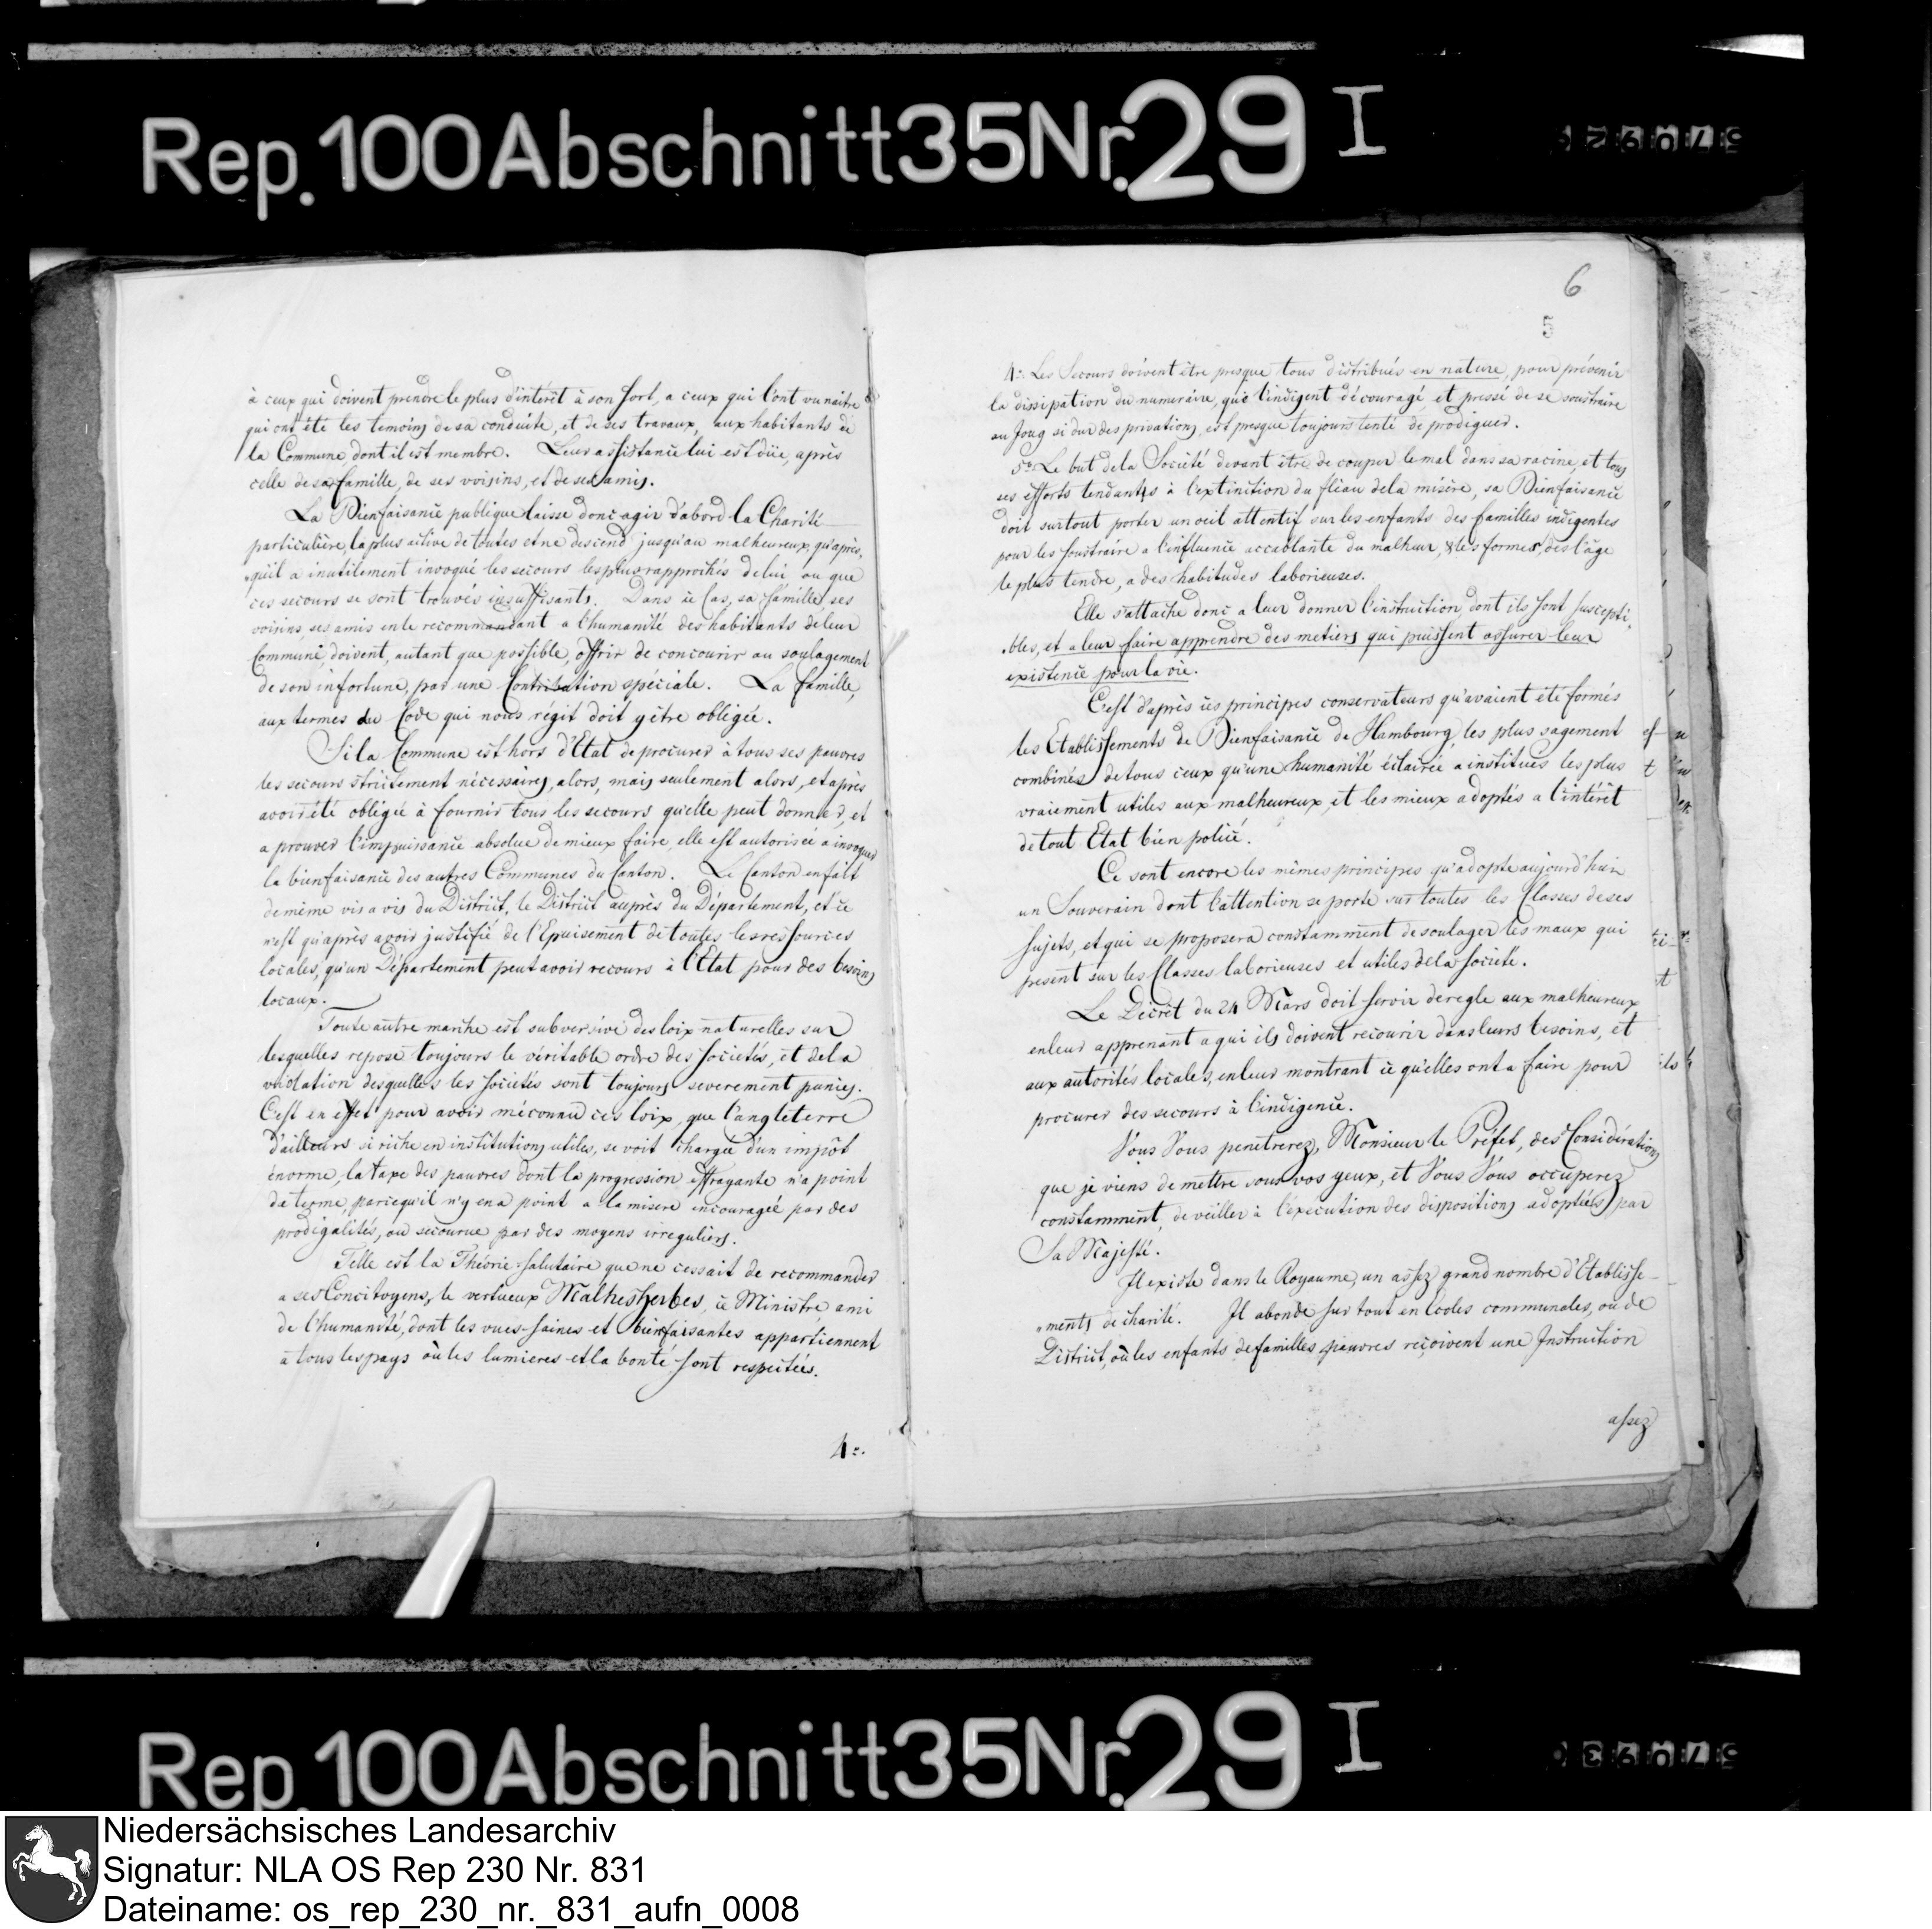 Rep. 100 Abschnitt 35 Nr. 29 I
à ceux qui doivent prendre le plus d'intérêt à son sort, a ceux qui l'ont vu naitre &
qui ont été les temoins de sa conduite, et de ses travaux, aux habitants de
la Commune, dont il est membre. Leur assistance lui est düe, après
celle de sa famille, de ses voisins, et de ses amis.
La Bienfaisance publique laisse donc agir d'abord la Charité
particulière, la plus active de toutes et ne descend jusqu'au malheureux, qu'après,
"qu'il a inutilement invoqué les secours les plus rapprochés de lui ou que
ces secours se sont trouvés insuffisants. Dans ce Cas, sa famille, ses
voisins, ses amis en le recommandant a l'humanité des habitants de leur
Commune, doivent, autant que possible, offrir de concourir au soulagement
de son infortune, par une Contribution speciale. La famille,
aux termes du Code qui nous régit doit y être obligée.
Si la Commune est hors d'Etat de procurer à tous ses pauvres
les secours strictement nécessaires, alors, mais seulement alors, et après
avoir été obligée à fournir tous les secours qu'elle peut donner, et
a prouver l'impuissance absolue de mieux faire, elle est autorisée a invoquer
la bienfaisance des autres Communes du Canton. Le Canton en fait
de même vis a vis du District, le District auprès du Département, et ce
n'est qu'après avoir justifié de l'Epuisement de toutes les ressources
locales, qu'un Département peut avoir recours à l'Etat pour des besoins
locaux.
Toute autre marche est subversive des loix naturelles sur
lesquelles repose toujours le véritable ordre des sociétés, et de la
violation desquelles les sociétés sont toujours severement punies.
C'est en effet pour avoir méconnu ces loix, que l'angleterre
d'ailleurs si riche en institutions utiles, se voit chargée d'un impôt
énorme, la taxe des pauvres dont la progression effrayante n'a point
de terme, parcequ'il n'y en a point a la misere encouragée par des
prodigalités, ou secourue par des moyens irreguliers.
Telle est la Théorie salutaire que ne cessait de recommander
a ses Concitoyens, le vertueux Malhesherbes, ce Ministre ami
de l'humanité, dont les vues saines et bienfaisantes appartiennent
a tous les pays où les lumieres et la bonté sont respectées.
4º.
6
5
4º. Les Secours doivent être presque tous distribués en nature, pour prévenir
la dissipation du numeraire, que l'indigent découragé et pressé de se soustraire
au Joug si dur des privations, est presque toujours tenté de prodiguer.
5º. Le but de la Société devant être de couper le mal dans sa racine, et tous
ses efforts tendants à l'extinction du fléau de la misère, sa Bienfaisance
doit surtout porter un oeil attentif sur les enfants des familles indigentes
pour les soustraire a l'influence accablante du malheur, & les former, dès l'âge
le plus tendre, a des habitudes laborieuses.
Elle s'attache donc a leur donner l'instruction dont ils sont suscepti„
„bles, et a leur faire apprendre des metiers qui puissent assurer leur
existence pour la vie.
C'est d'après ces principes conservateurs qu'avaient été formés
les Etablissements de Bienfaisance de Hambourg, les plus sagement
combinés de tous ceux qu'une humanité éclairée a institués les plus
vraiement utiles aux malheureux, et les mieux adoptés a l'intérêt
de tout Etat bien policé.
Ce sont encore les mêmes principes qu'adopte aujourd'hui
un Souverain dont l'attention se porte sur toutes les Classes de ses
sujets, et qui se proposera constamment de soulager les maux qui
pesent sur les Classes laborieuses et utiles de la société.
Le Décret du 24 Mars doit servir de regle aux malheureux
en leur apprenant a qui ils doivent recourir dans leurs besoins, et
aux autorités locales, en leur montrant ce qu'elles ont a faire pour
procurer des secours à l'indigence.
Vous Vous penetrerez, Monsieur le Préfet, des Considérations
que je viens de mettre sous vos yeux, et Vous Vous occuperez
constamment, de veiller à l'execution des dispositions adoptées par
Sa Majesté.
Il existe dans le Royaume, un assez grand nombre d'Etablisse-
„ments de charité. Il abonde sur tout en Ecoles communales, ou de
District, où les enfants de familles pauvres reçoivent une Instruction
assez
Rep. 100 Abschnitt 35 Nr. 29 I
Niedersächsisches Landesarchiv
Signatur: NLA OS Rep 230 Nr. 831
Dateiname: os_rep_230_nr._831_aufn_0008